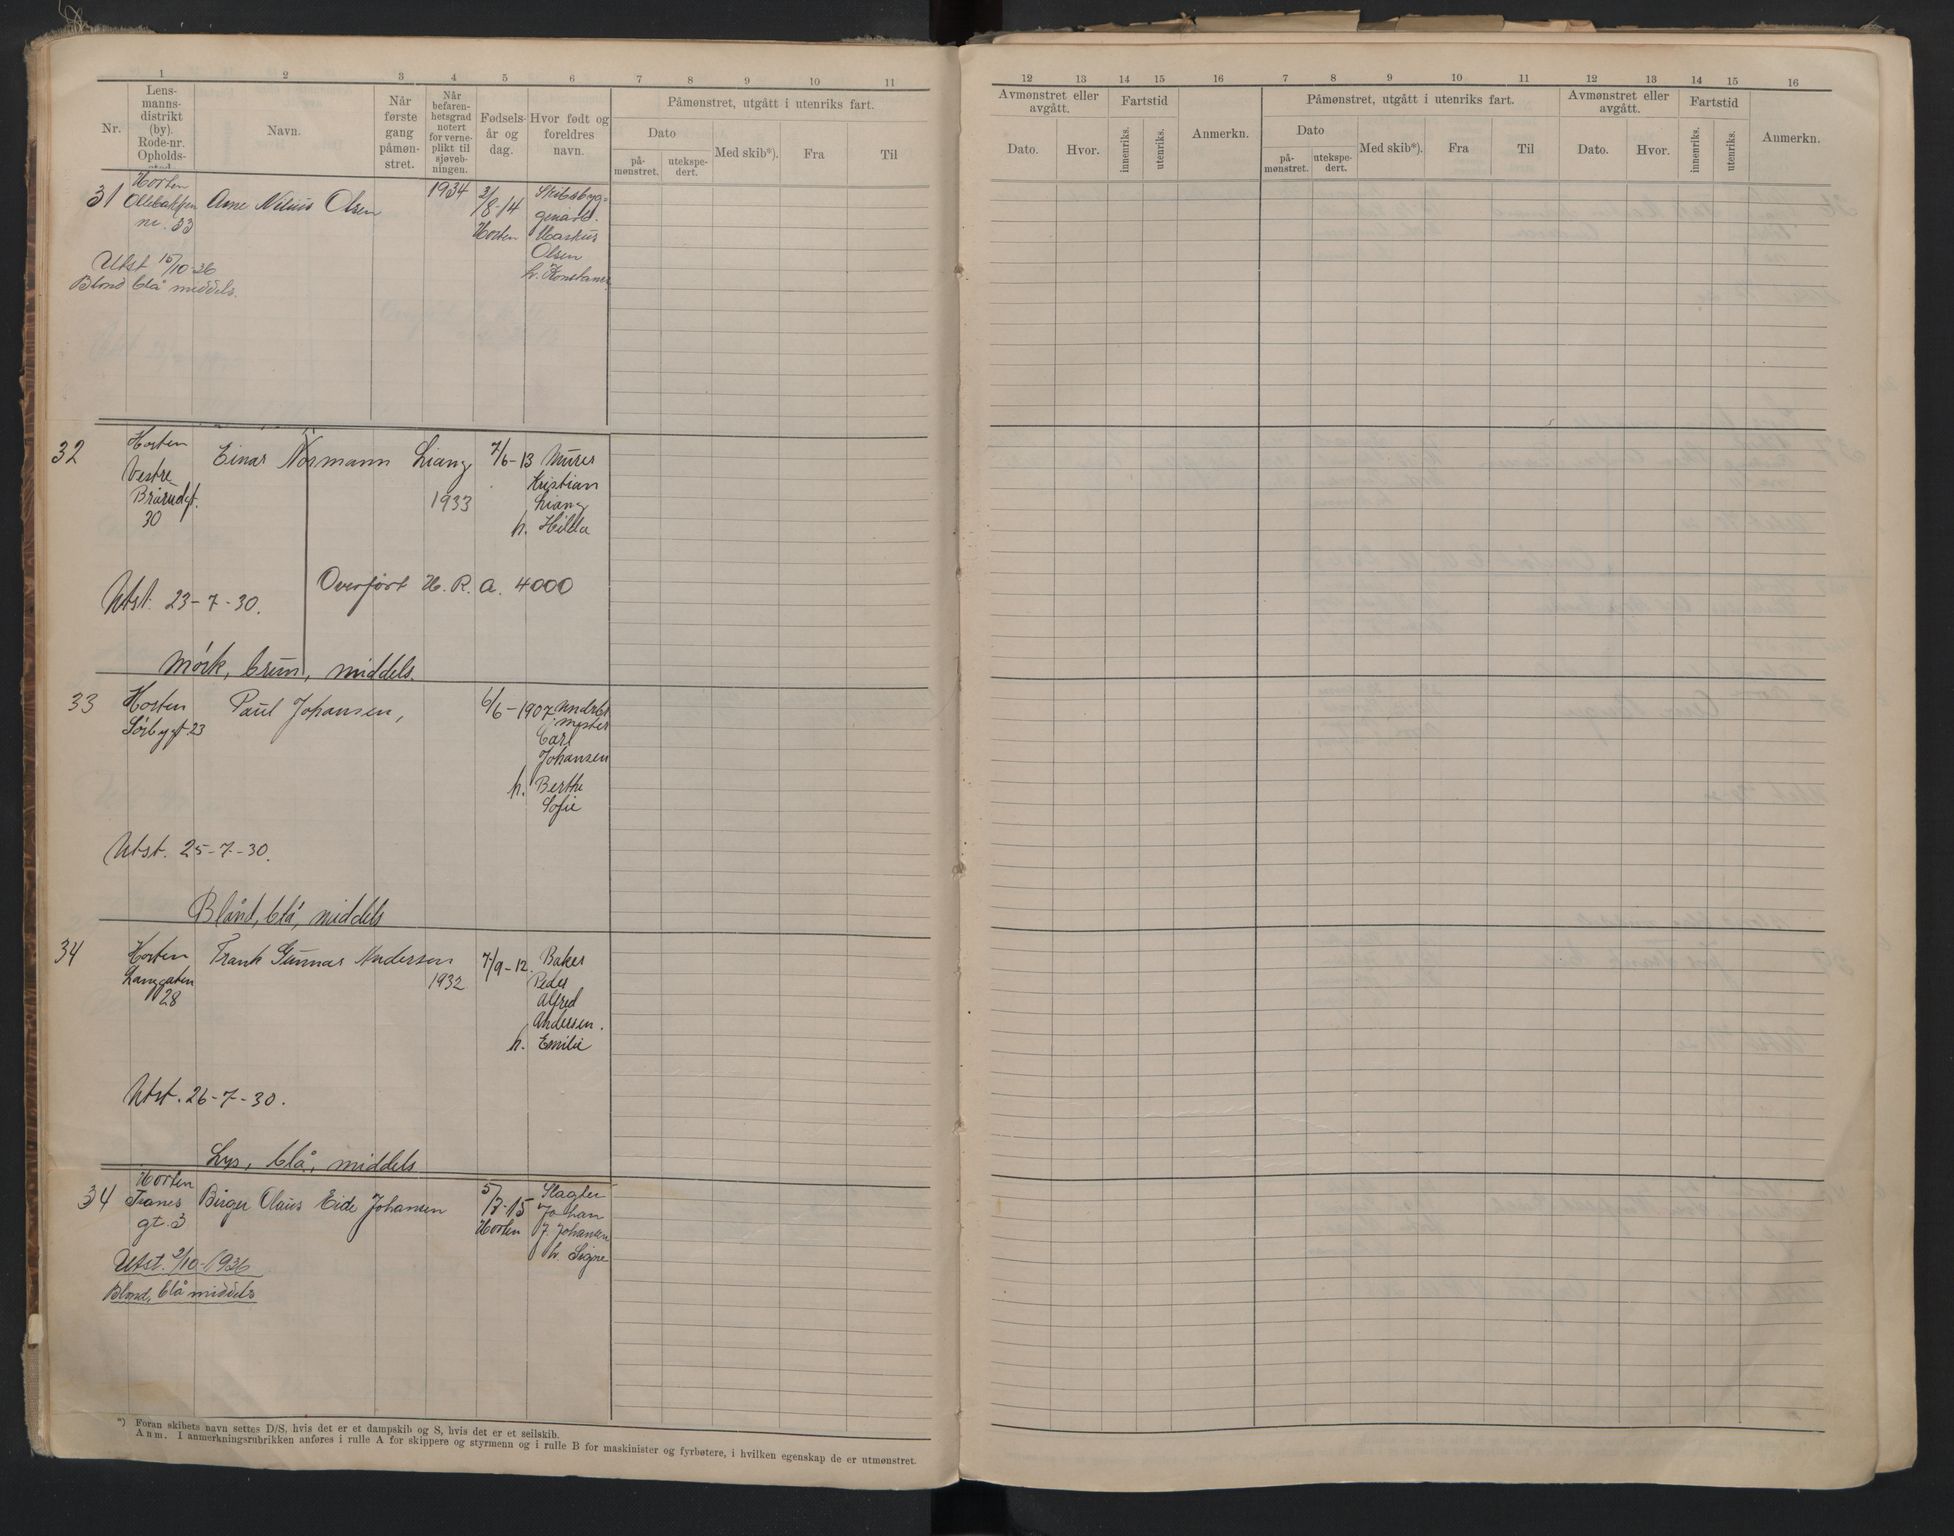 1 2 3 4 5 6 7 8 9 10 11
Nr.
Lens-
manns-
distrikt
(by).
Rode-nr.
Opholds-
sted.
Navn.
Når
første
gang
påmøn-
stret.
Når
befaren-
hetsgrad
notert
for verne-
plikt til
sjøveb-
ningen.
Fødsels-
år og
dag.
Hvor født og
foreldres
navn.
Påmønstret, utgått i utenriks fart.
Dato
på-
mønstret.
utekspe-
dert.
Med skib*).
Fra
Til
31
Horten
nr. 33
Arne Nilius Olsen
1934
3/8-14
Horten
Skibsbyg-
Markus
Olsen
h. Konstanse
Utst 15/10-36
Blond blå middels.
32
Horten
Vestre
Brårudgt.
30
Einar Normann Liang
1933
7/6-13
Murer
Kristian
Liang
h. Hilda
Overført H. R. A. 4000
Utst. 23-7-30.
Mörk, brun, middels.
33
Horten
Sørbygt. 23
Paul Johansen,
6/6-1907
Carl
Johansen
h. Berthe
Sofie
Utst. 25-7-30.
Blånd, blå, middels
34
Horten
Langgaten
28
Frank Gunnar Andersen
1932
7/9-12.
Baker
Peder
Alfred
Andersen.
h. Emilie
Utst. 26-7-30.
Lys, blå, middels
34
Horten
Tranes
gt. 3
Birger Olaus Eide Johansen
5/3-15
Horten
Slagter
Johan
J. Johansen
h. Signe
Utst. 2/10-1936
Blond, blå middels
*) Foran skibets navn settes D/S, hvis det er et dampskib og S, hvis det er et seilskib.
Anm. I anmerkningsrubrikken anføres i rulle A for skippere og styrmenn og i rulle B for maskinister og fyrbøtere, i hvilken egenskap de er utmønstret.
12 13 14 15 16 7 8 9 10 11 12 13 14 15 16
Avmønstret eller
avgått.
Dato.
Hvor.
Fartstid
innenriks.
utenriks.
Anmerkn.
Påmønstret, utgått i utenriks fart.
Dato
på-
mønstret.
utekspe-
dert.
Med skib*).
Fra
Til
Avmønstret eller
avgått.
Dato.
Hvor.
Fartstid
innenriks.
utenriks.
Anmerkn.